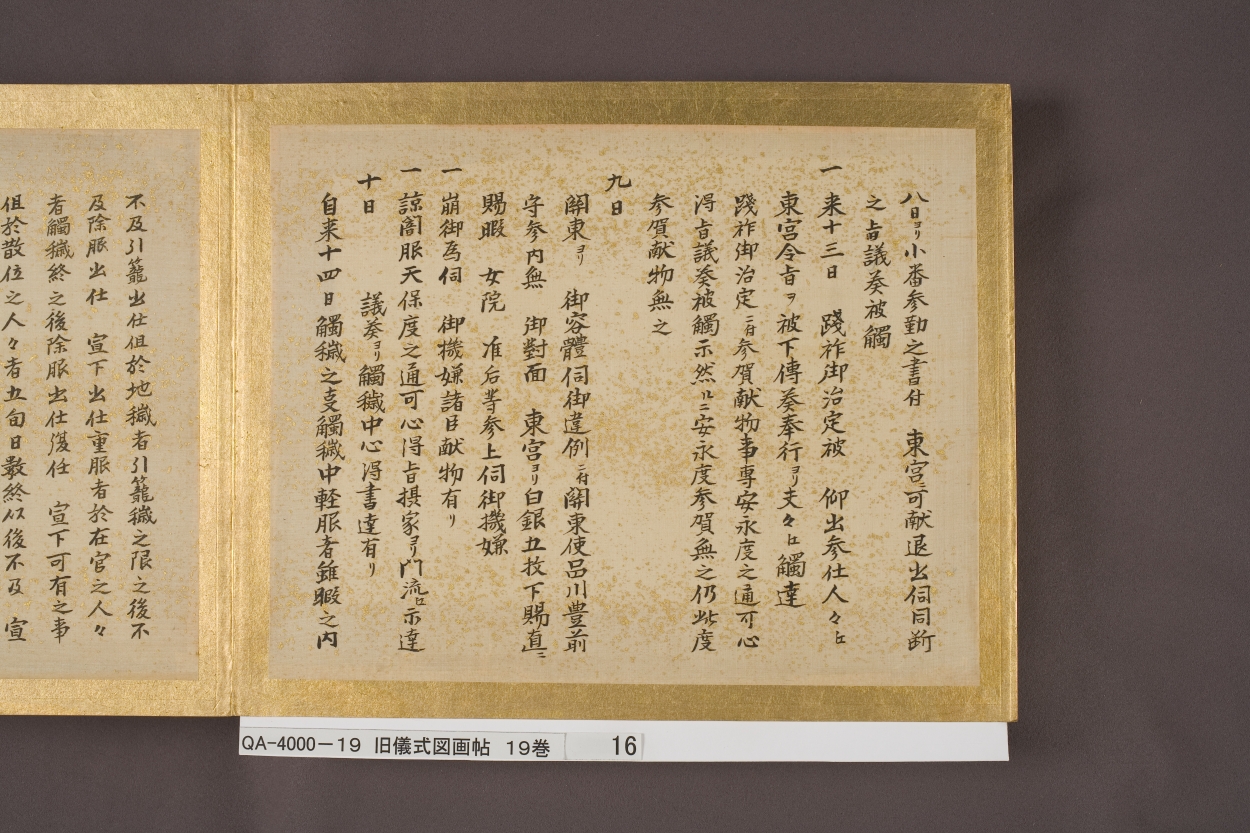 八日ヨリ小番参勤之書付　東宮ニ可献退出伺同断
之旨議奏被觸
一来十三日　踐祚御治定被　仰出参仕人々ヒ
東宮令旨ヲ被下傳奏奉行ヨリ夫々ヒ觸達
踐祚御治定ニ付参賀献物事専安永度之通可心
得旨議奏被觸示然ルニ安永度参賀無之仍此度
参賀献物無之
九日
關東ヨリ　御容體伺御違例ニ付關東使品川豊前
守参内無　御對面　東宮ヨリ白銀五枚下賜直ニ
賜暇　女院　准后等参上伺御機嫌
一崩御為伺　御機嫌諸臣献物有リ
一諒闇服天保度之通可心得旨摂家ヨリ門流ヒ示達
十日　議奏ヨリ觸穢中心得書達有リ
自来十四日觸穢之支觸穢中軽服者雖暇之内
不及引籠出仕但於地穢者引籠穢之限之後不
及除服出仕　宣下出仕重服者於在官之人々
者觸穢終之後除服出仕復任　宣下可有之事
但於散位之人々者五旬日数終以後不及　宣
QA-4000－19　旧儀式図画帖　19巻　16